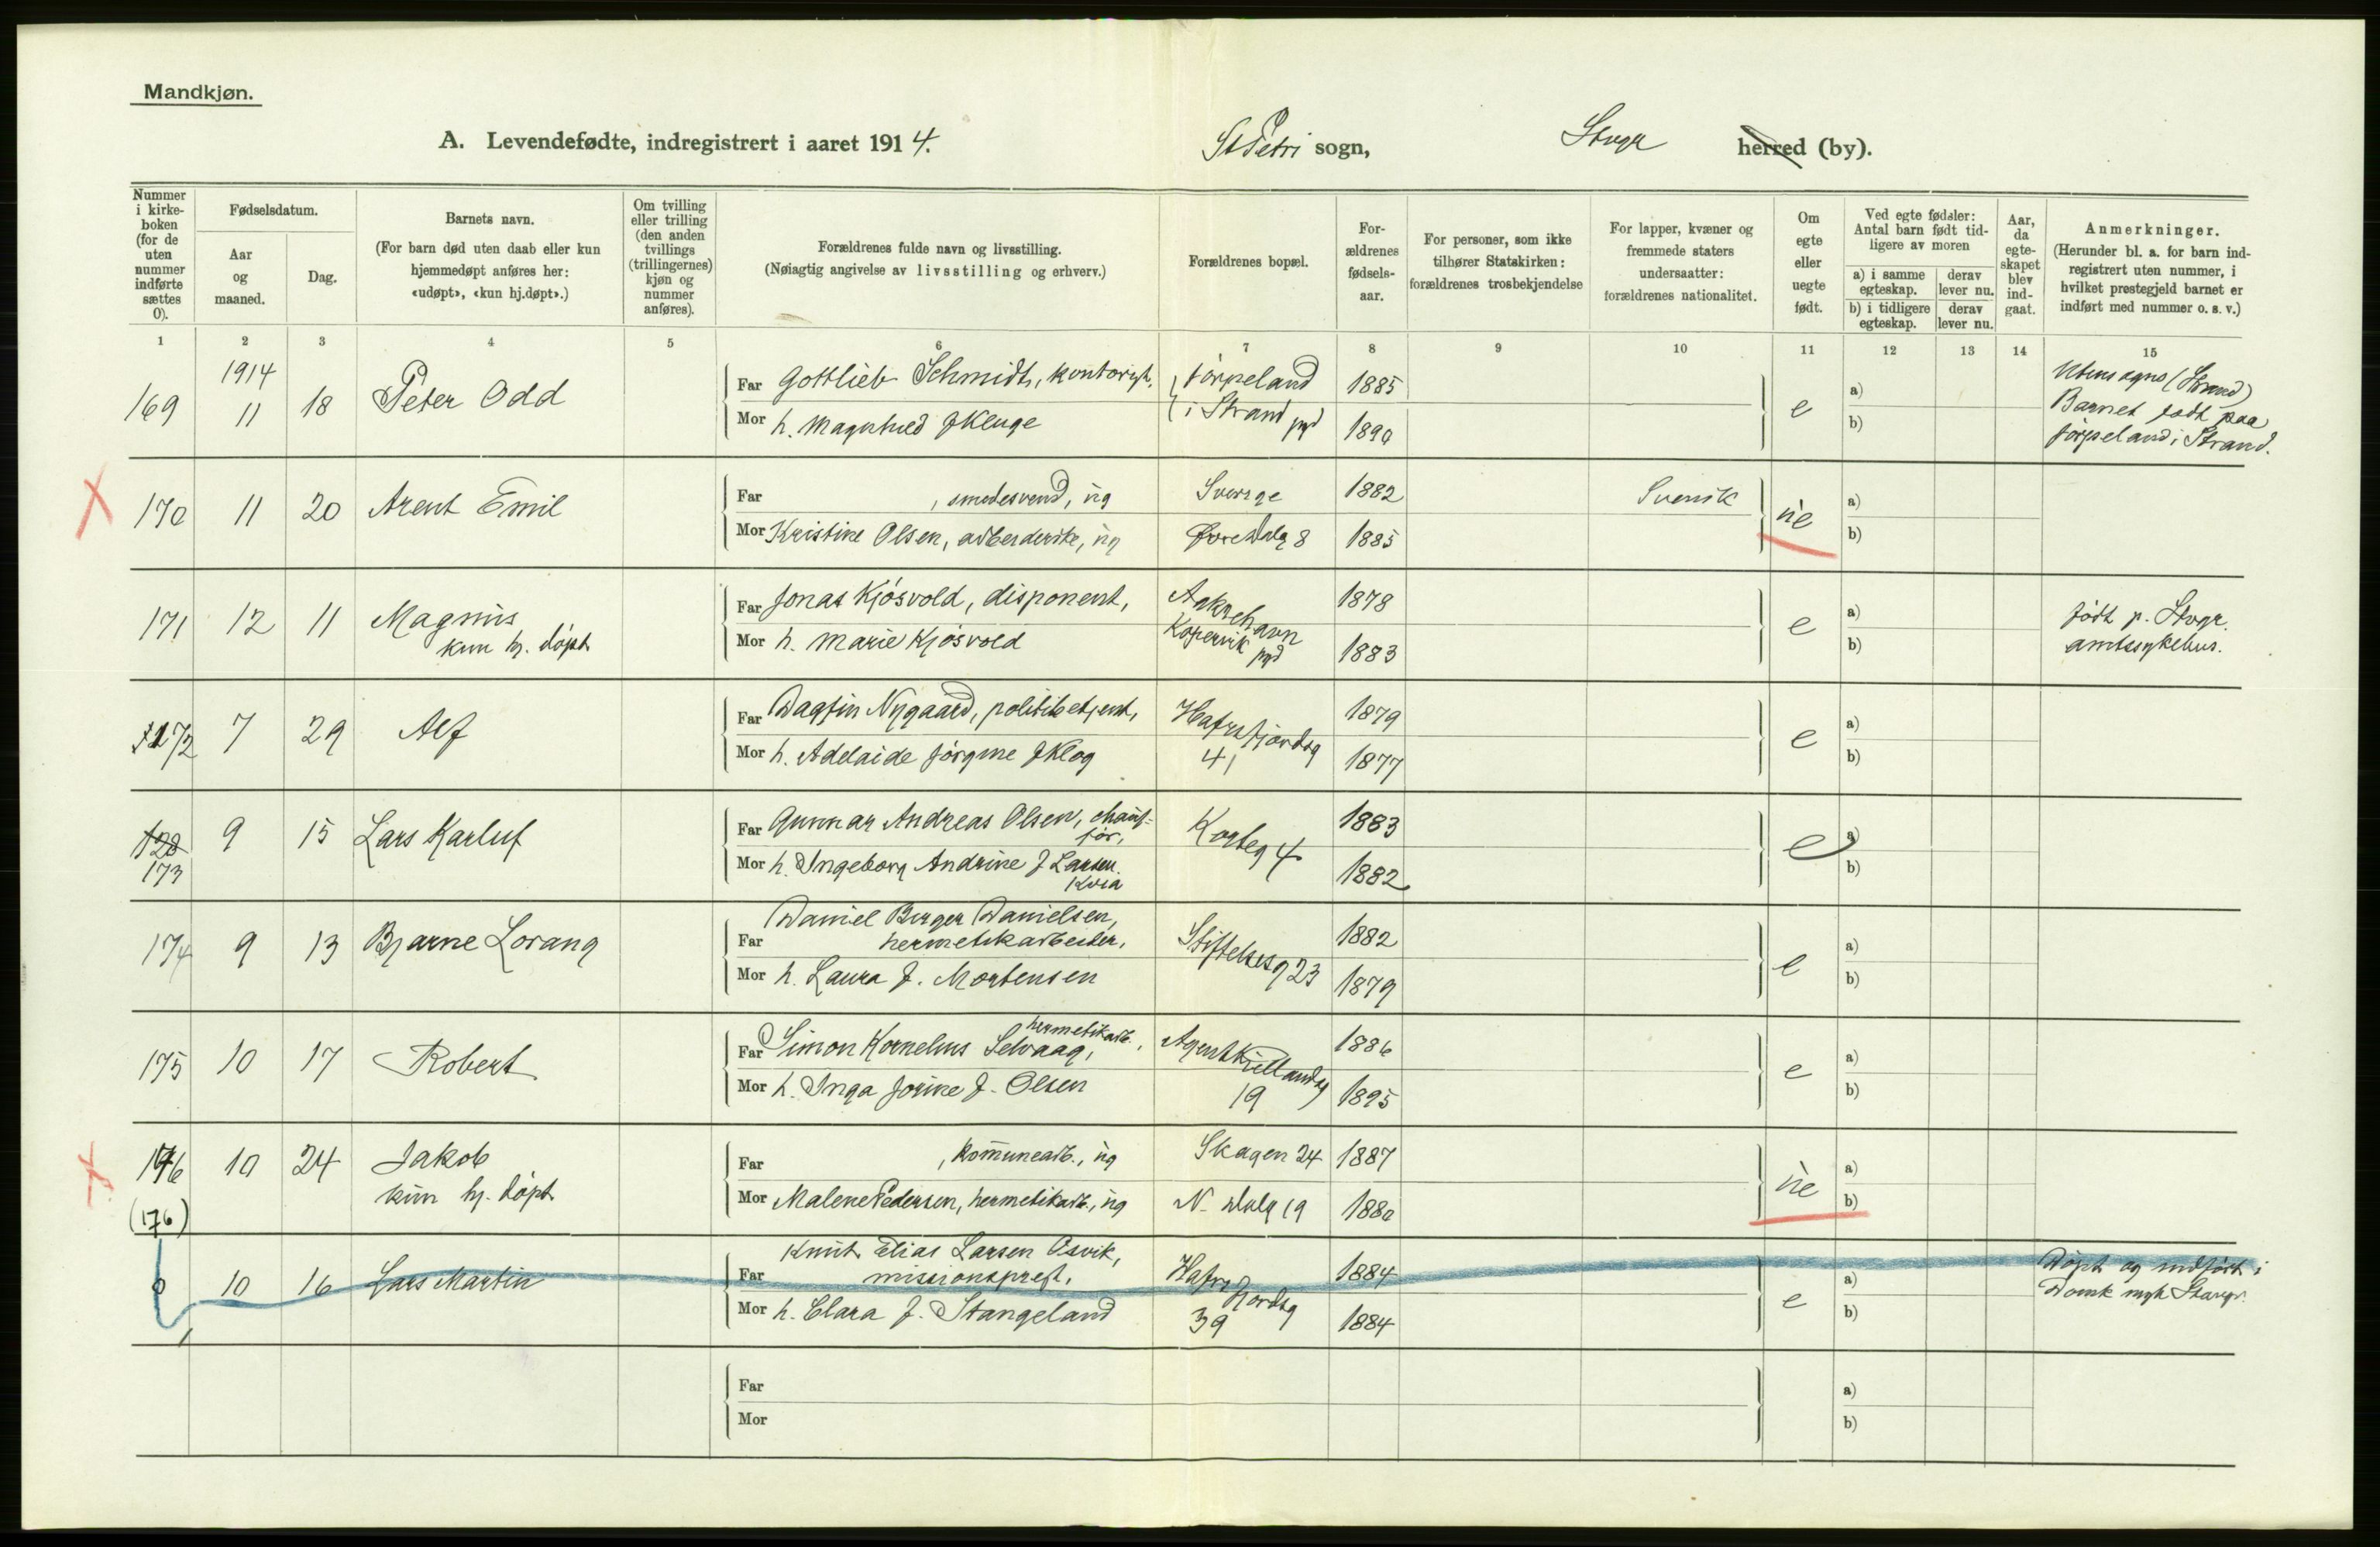 Mandkjøn.
A. Levendefødte, indregistrert i aaret 1914. St Petri sogn, Stvgr herred (by).
Nummer i kirke-boken (for de uten nummer indførte sættes 0).
Fødselsdatum.
Aar og maaned.
Dag.
Barnets navn.
(For barn død uten daab eller kun hjemmedøpt anføres her: «udøpt», «kun hj.døpt».)
Om tvilling eller trilling (den anden tvillings (trillingernes) kjøn og nummer anføres).
Forældrenes fulde navn og livsstilling.
(Nøiagtig angivelse av livsstilling og erhverv.)
Forældrenes bopæl.
For-ældrenes fødsels-aar.
For personer, som ikke tilhører Statskirken: forældrenes trosbekjendelse
For lapper, kvæner og fremmede staters undersaatter: forældrenes nationalitet.
Om egte eller uegte født.
Ved egte fødsler: Antal barn født tid-ligere av moren
a) i samme egteskap.
derav lever nu.
b) i tidligere egteskap.
derav lever nu.
Aar, da egte-skapet blev ind-gaat.
Anmerkninger.
(Herunder bl. a. for barn ind-registrert uten nummer, i hvilket prestegjeld barnet er indført med nummer o. s. v.)
1 2 3 4 5 6 7 8 9 10 11 12 13 14 15
1914
169 11 18 Peter Odd
Far Gottlieb Schmidt, kontorist, Jørpeland 1885
Mor h. Magnhild f Kluge i Strand pgd 1890
e a) b)
Utensogns (Strand)
Barnet født paa
Jørpeland i Strand.
170 11 20 Arent Emil
Far , smedesvend, ug Sverige 1882 Svensk
Mor Kristine Olsen, arbeiderske, ug Øvre Dalg 8 1885
ue a) b)
171 12 11 Magnus
kun hj. døpt
Far Jonas Kjósvold, disponent, Aakrehavn 1878
Mor h. Marie Kjósvold Kopervik pgd 1883
e a) b)
født p. Stvgr.
amtssykehus.
172 7 29 Alf
Far Dagfin Nygaard, politibetjent, Hafrsfjordsg 1879
Mor h. Adelaide Jørgine f Klog 41 1877
e a) b)
128
173 9 15 Lars Karluf
Far Gunnar Andreas Olsen, chauf-
før, Kosteg 4 1883
Mor h. Ingeborg Andrine f Larsen
Kvia 1882
e a) b)
174 9 13 Bjarne Lorang
Daniel Berger Danielsen,
Far hermetikarbeider, Stiftelsesg 23 1882
Mor h. Laura f. Mortensen 1879
e a) b)
175 10 17 Robert
hermetikarb.
Far Simon Kornelius Selvaag, Agent Kiellandsg 1886
Mor h. Inga Jorine f. Olsen 19 1895
e a) b)
176 10 24 Jakob
kun hj. døpt
Far , kommunearb., ug Skagen 24 1887
Mor Malene Pedersen, hermetikarb., ug N. Dalg 19 1880
ue a) b)
(176)
0 10 16 Lars Martin
Knut Elias Larsen Osvik,
Far missionsprest, Hafrsfjordsg 1884
Mor h. Clara f. Stangeland 39 1884
e a) b)
Døpt og indført i
Domk mgh Stavgr.
Far
Mor
a)
b)